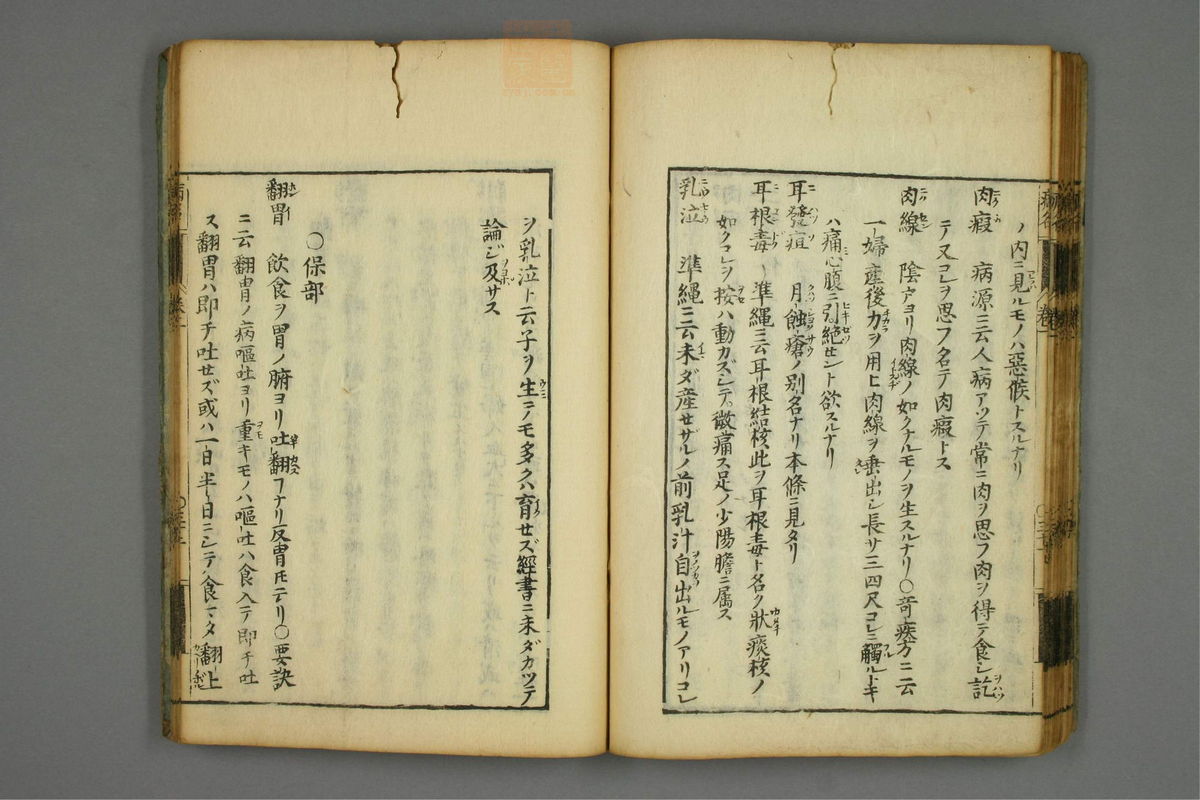 ノ内ニ見ルモノハ惡候トスルナリ
肉瘕 病源ニ云人病アツテ常ニ肉ヲ思フ肉ヲ得テ食シ訖
テ又コレヲ思フ名テ肉瘕トス
肉線 陰戸ヨリ肉線ノ如クナルモノヲ生スルナリ〇奇疾方ニ云
一婦産後力ヲ用ヒ肉線ヲ垂出シ長サ三四尺コレニ觸ルトキ
ハ痛心腹ニ引絶セント欲スルナリ
耳發疽 月蝕瘡ノ別名ナリ本條ニ見タリ
耳根毒 準繩ニ云耳根結核此ヲ耳根毒ト名ク狀痰核ノ
如クコレヲ按ハ動カズシテ微痛ス足ノ少陽膽ニ属ス
乳泣 準繩ニ云未ダ産セザルノ前乳汁自出ルモノアリコレ
ヲ乳泣ト云子ヲ生ニノモ多クハ育セズ經書ニ未ダカツテ
論ジ及サス
〇保部
翻胃 飲食ヲ胃ノ腑ヨリ吐翻フナリ反胃圧テリ〇要訣
ニ云翻胃ノ病嘔吐ヨリ重キモノハ嘔吐ハ食入テ即チ吐
ス翻胃ハ即チ吐せズ或ハ一日半日ニシテ食マタ翻上